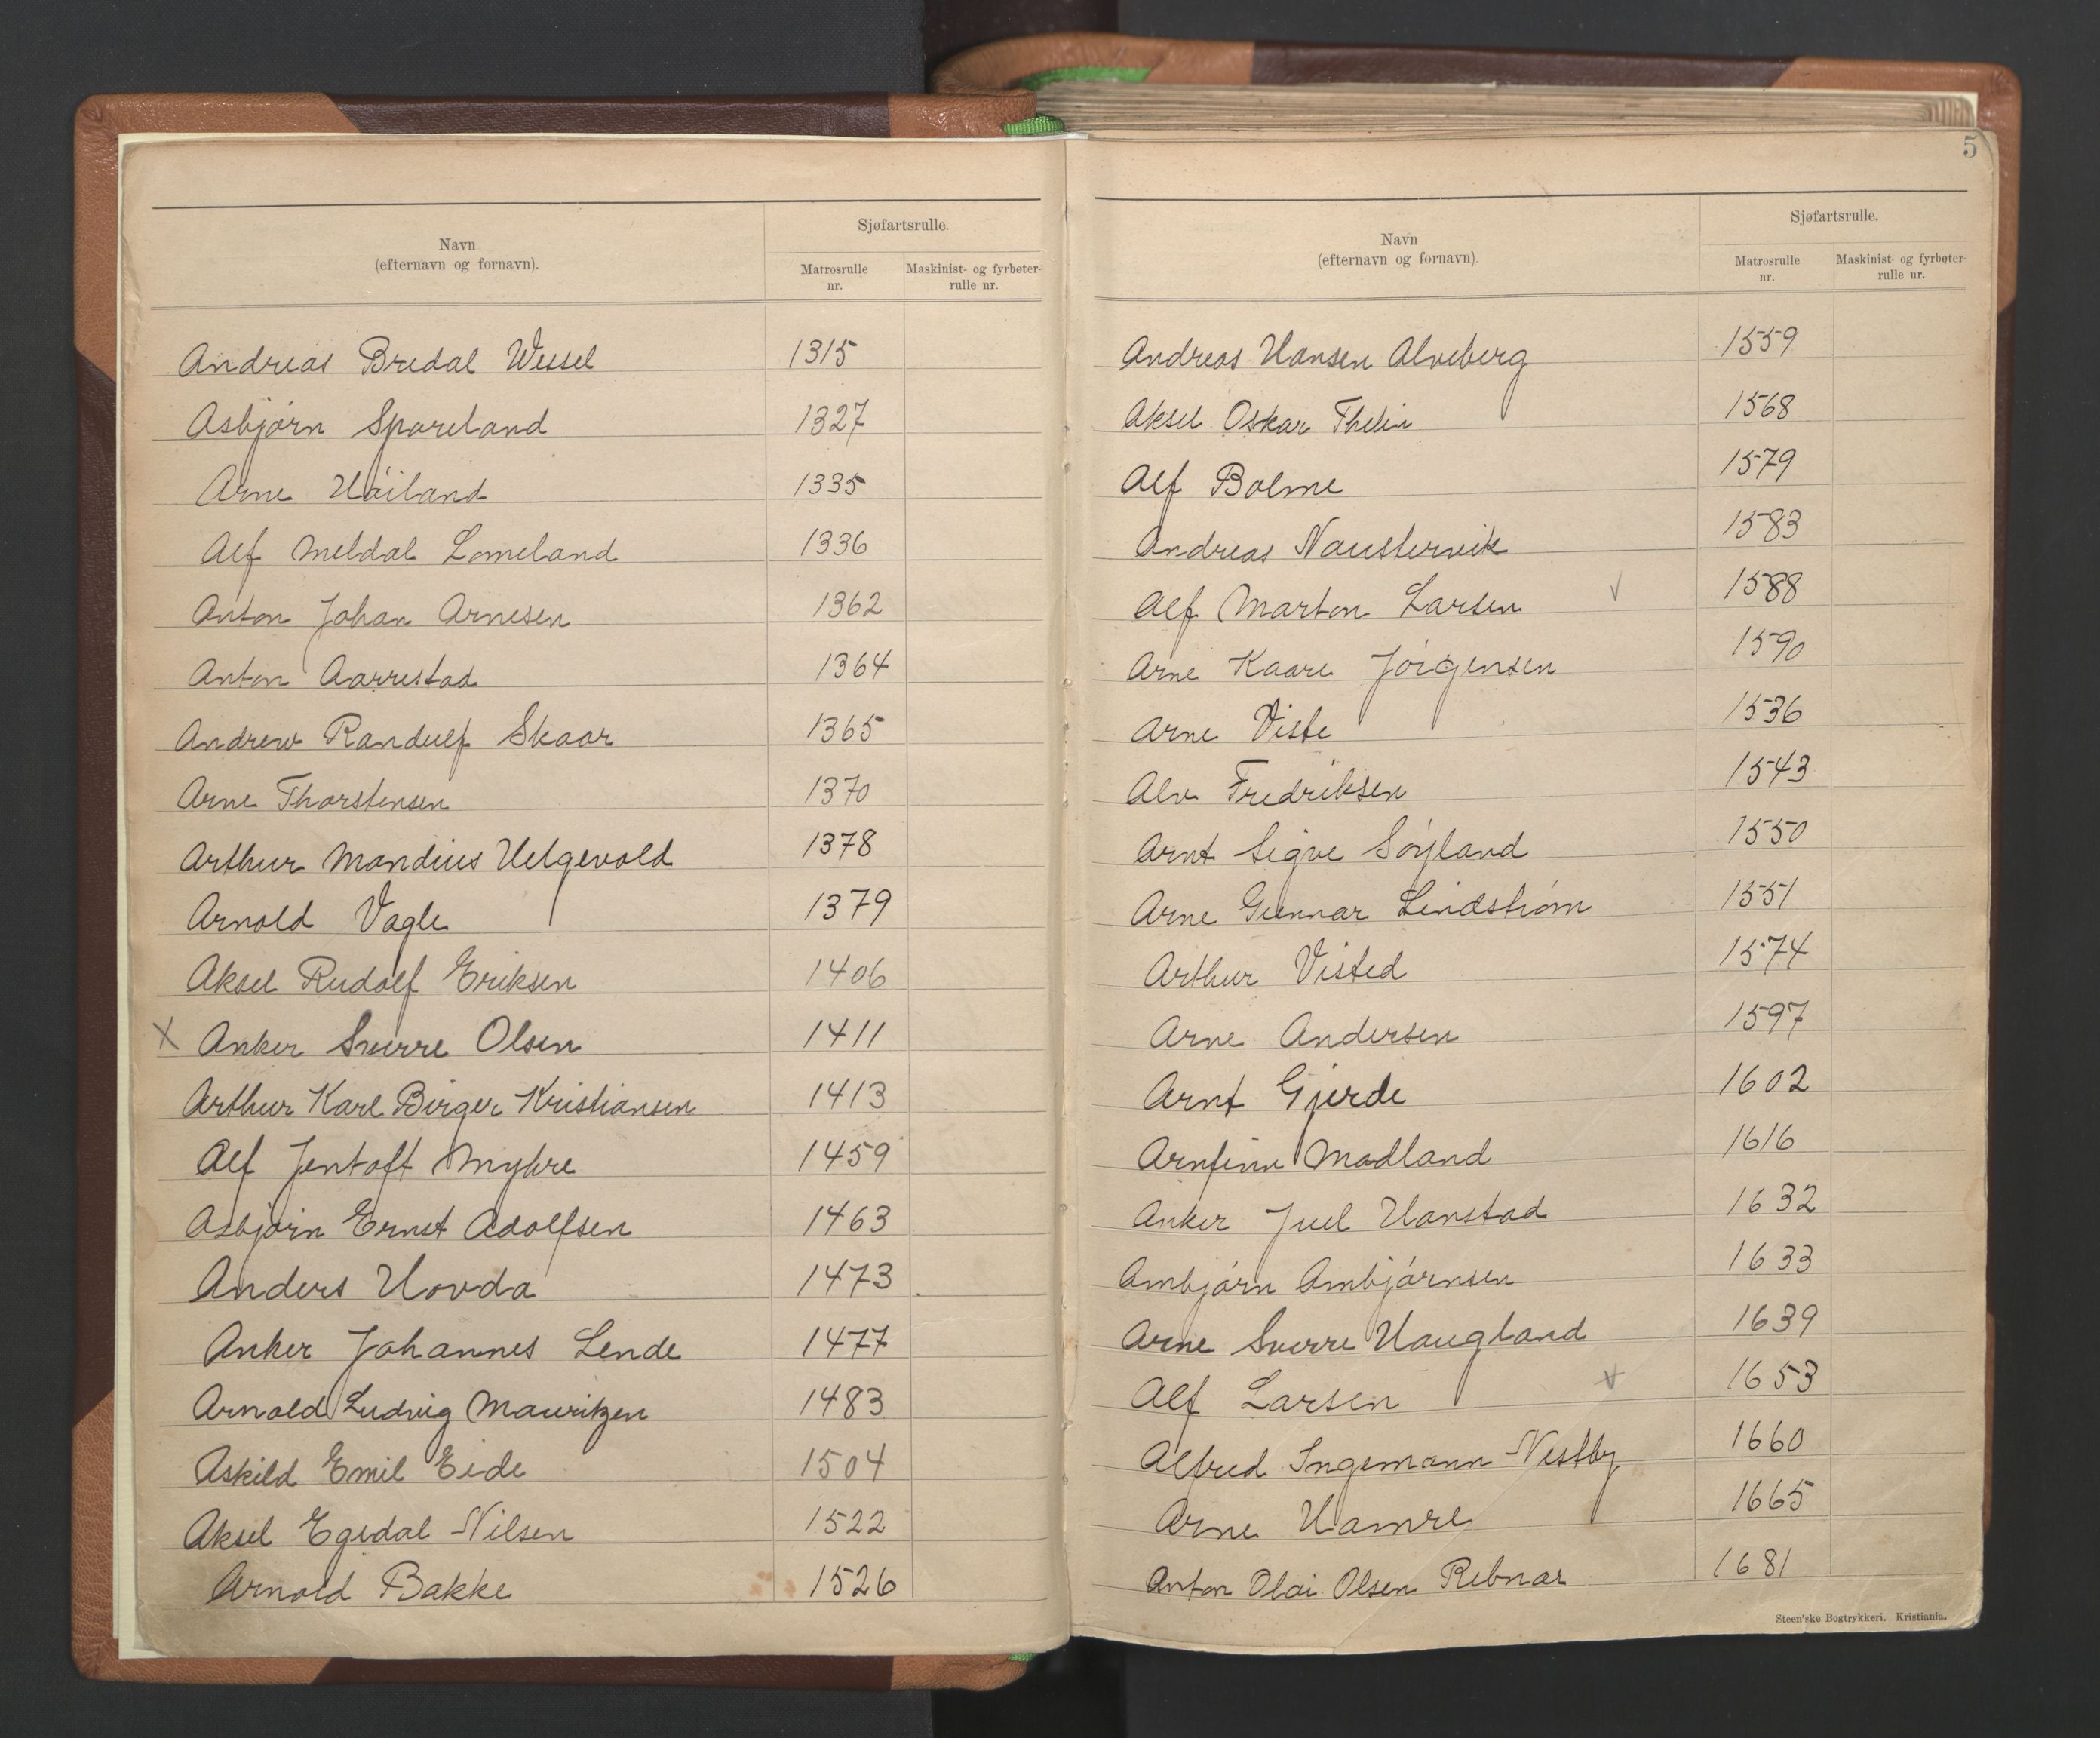 Navn
(efternavn og fornavn).
Sjøfartsrulle.
Matrosrulle
nr.
Maskinist- og fyrbøter-
rulle nr.
Andreas Bredal Wessel 1315
Asbjørn Spareland 1327
Arne Høiland 1335
Alf Meldal Lomeland 1336
Anton Johan Arnesen 1362
Anton Aarrestad 1364
Andrew Randulf Skaar 1365
Arne Thorstensen 1370
Arthur Mandius Helgevold 1378
Arnold Vagle 1379
Aksel Rudolf Eriksen 1406
X Anker Sverre Olsen 1411
Arthur Karl Birger Kristiansen 1413
Alf Jentoft Myhre 1459
Asbjørn Ernst Adolfsen 1463
Anders Hovda 1473
Anker Johannes Lende 1477
Arnold Ludvig Mauritzen 1483
Askild Emil Eide 1504
Aksel Egedal Nilsen 1522
Arnold Bakke 1526
5
Navn
(efternavn og fornavn).
Sjøfartsrulle.
Matrosrulle
nr.
Maskinist- og fyrbøter-
rulle nr.
Andreas Hansen Alveberg 1559
Aksel Oskar Thelin 1568
Alf Bolme 1579
Andreas Naustervik 1583
Alf Marton Larsen √ 1588
Arne Kaare Jørgensen 1590
Arne Viste 1536
Alv Fredriksen 1543
Arnt Sigve Søyland 1550
Arne Gunnar Lindstrøm 1551
Arthur Visted 1574
Arne Andersen 1597
Arnt Gjerde 1602
Arnfinn Madland 1616
Anker Juel Hanstad 1632
Ambjørn Ambjørnsen 1633
Arne Sverre Haugland 1639
Alf Larsen 1653
Alfred Ingemann Vestby 1660
Arne Hamre 1665
Anton Olai Olsen Rebnar 1681
Steen'ske Bogtrykkeri. Kristiania.